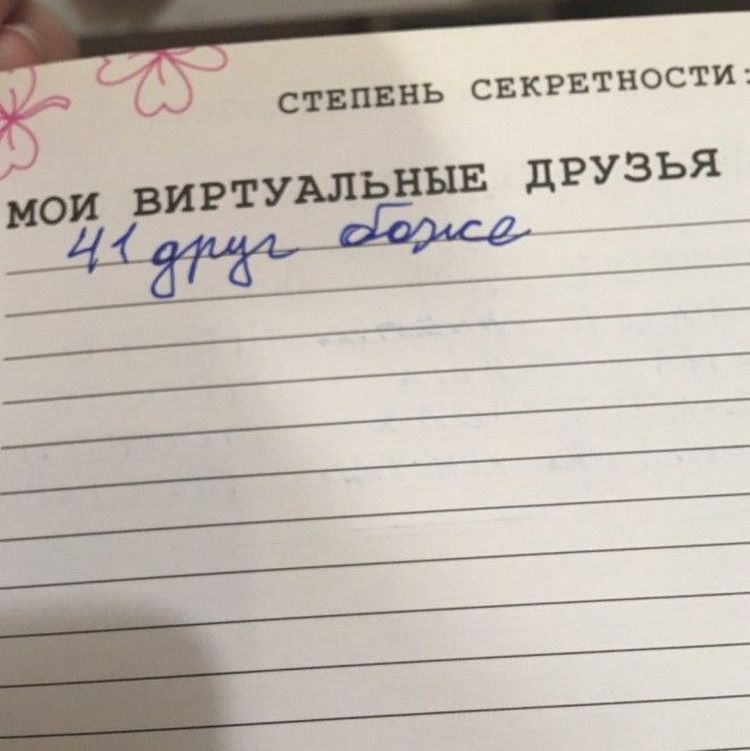 СТЕПЕНЬ СЕКРЕТНОСТИ:
МОИ ВИРТУАЛЬНЫЕ ДРУЗЬЯ
41 друг боже